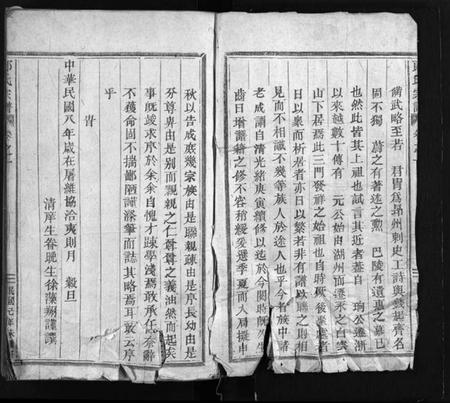 尚武略至若 君冑爲昴州刺史工詩與蔡起齊名
固不獨 蔚之有著述之勲 巴陵有還東之墓已
也然此皆其上祖也試言其近者蓋自 珣公遷浙
以來越數十傳有 元公始由湖州而遷永之白雲
山下居焉此三門發祥之始祖也自時厥後
日以衆而析居者亦日以繁若非有譜以聯之則相
見而不相識不幾等族人於途人也乎今有族中諸
老成謂自清光緒庚寅續修以迄於今閱時
齒日增譜籍之修不容稍緩爰邀季夏而入局
秋以告成庶幾宗族由是以聯親疎由是以序長幼由是以
分尊卑由是以別而親親之仁尊尊之義油然而起矣
事既竣求序於余余自愧才疎學淺焉敢承任辭
不獲命固不揣鄙陋謹濡筆而誌其略焉耳敢云序
乎 岢
中華民國八年歲在屠維協洽夷則月 穀旦
清庠生眷晚生徐藻翔謹譔